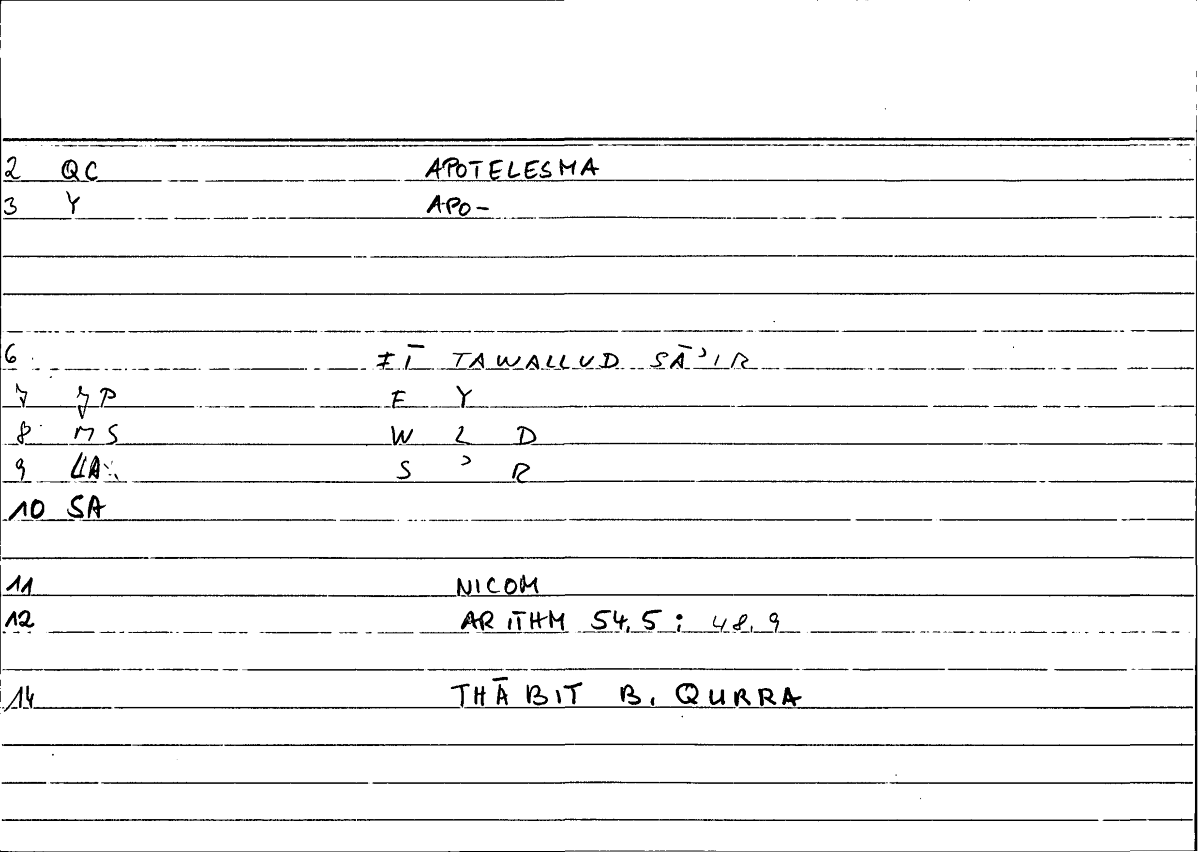 2 QC APOTELESMA
3 Y APO-
6 FĪ TAWALLUD SĀʾIR
7 P F Y
8 MS W L D
9 S ʾ R
10 SA
11 NICOM
12 ARITHM 54.5; 48.9
14 THĀBIT B. QURRA